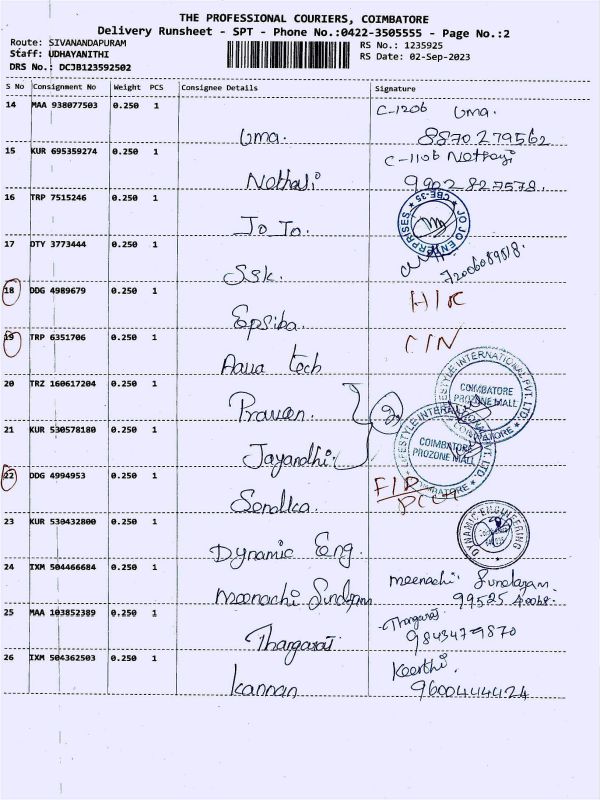 THE PROFESSIONAL COURIERS, COIMBATORE
Delivery Runsheet - SPT - Phone No.:0422-3505555 - Page No.:2
Route: SIVANANDAPURAM
RS No.: 1235925
Staff: UDHAYANITHI
RS Date: 02-Sep-2023
DRS No.: DCJB123592502
S No Consignment No Weight PCS Consignee Details Signature
14 MAA 938077503 0.250 1
C-1206 Uma.
Uma. 8870279562
15 KUR 695359274 0.250 1
C-1106
9902827578.
16 TRP 7515246 0.250 1
JO JO ENTERPRISES CBE-35
Jo Jo.
17 DTY 3773444 0.250 1
Ssk.
18 DDG 4989679 0.250 1
Epsiba.
19 TRP 6351706 0.250 1
Aqua tech
20 TRZ 160617204 0.250 1
LIFESTYLE INTERNATIONAL PVT. LTD.
COIMBATORE
PROZONE MALL
Praveen. 2
21 KUR 530578180 0.250 1
LIFESTYLE INTERNATIONAL PVT. LTD.
COIMBATORE
PROZONE MALL
Jayandhi.
22 DDG 4994953 0.250 1
23 KUR 530432800 0.250 1
DYNAMIC ENGINEERING
Dynamic Eng.
24 IXM 504466684 0.250 1
Meenachi
Meenachi
25 MAA 103852389 0.250 1
Thangaraj
Thangaraj.
9843479870
26 IXM 504362503 0.250 1
Keerthi.
Kannan 9600444424